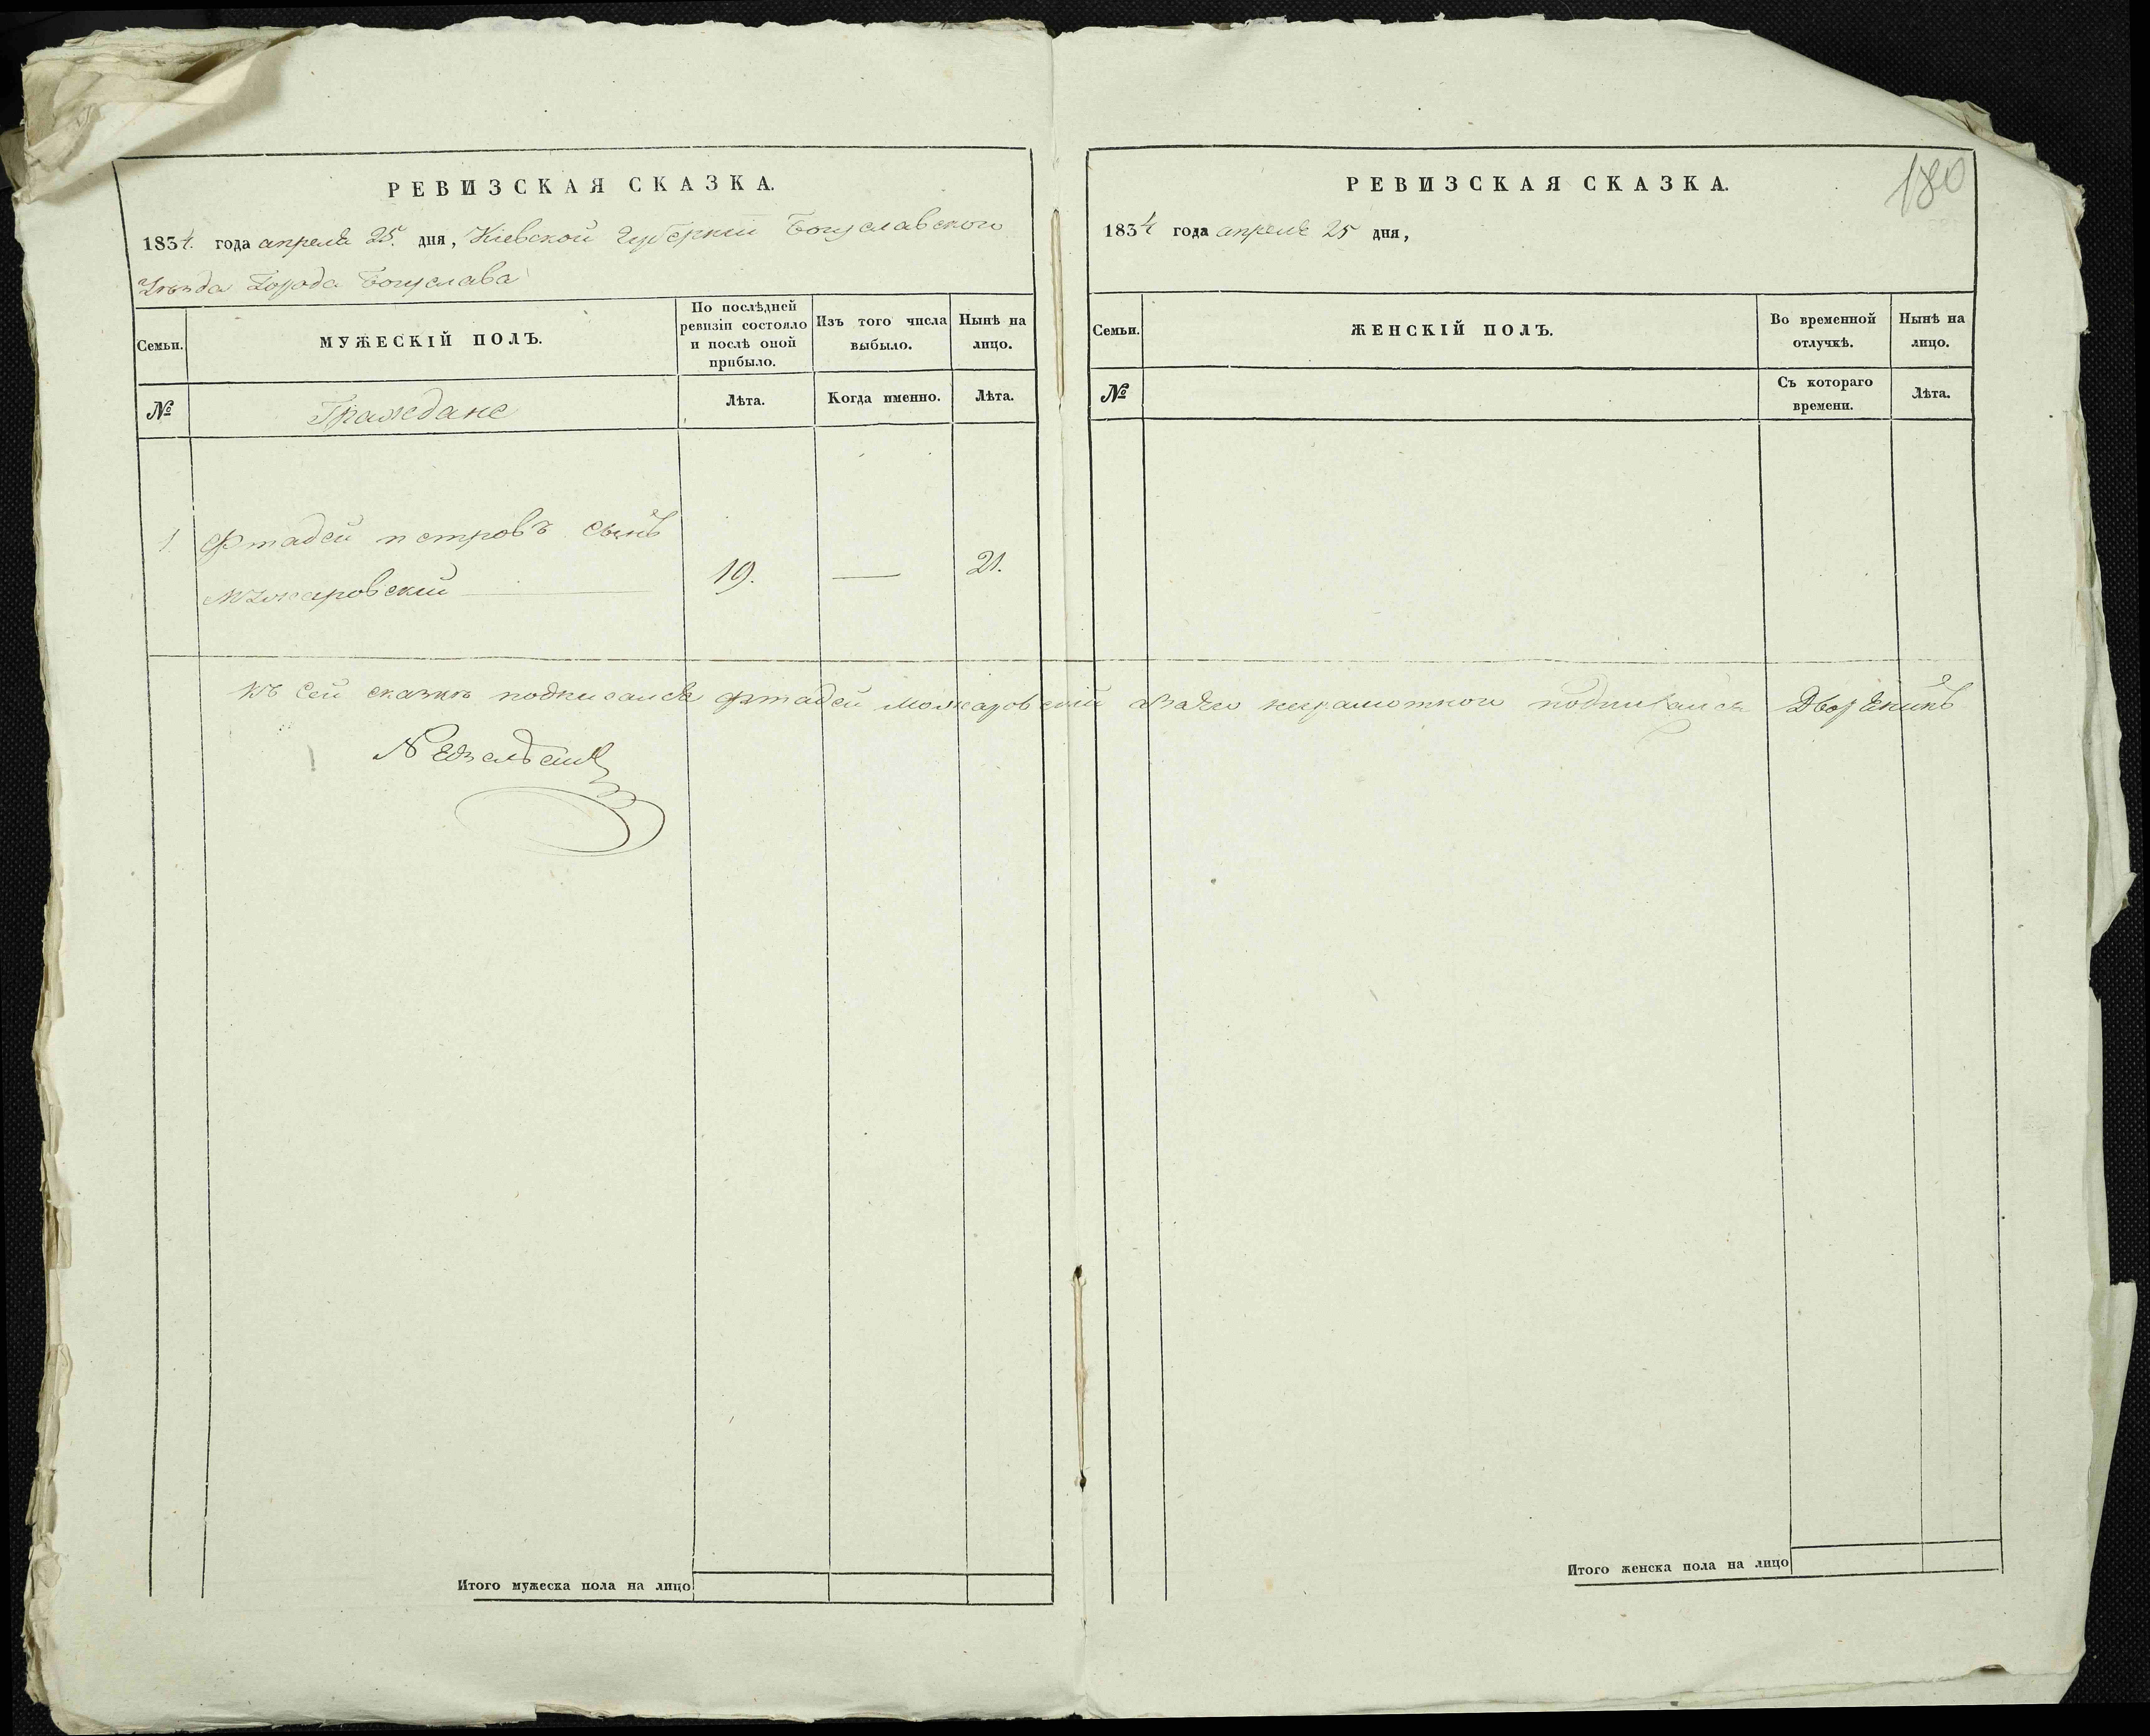 РЕВИЗСКАЯ СКАЗКА.
1834. года апреля 25. дня, Кіевской Губерніи Богуславского
Уѣзда Города Богуслава
Семьи.
МУЖЕСКІЙ ПОЛЪ.
По послѣдней ревизіи состояло и послѣ оной прибыло.
Изъ того числа выбыло.
Нынѣ на лицо.
№
Граждане
Лѣта.
Когда именно.
Лѣта.
1. Фтадей петровъ сынъ
19. — 21.
Къ сей сказкѣ подписался ФтадейМожаровскій
Итого мужеска пола на лицо
180
РЕВИЗСКАЯ СКАЗКА.
1834 года апреля 25 дня,
Семьи.
ЖЕНСКІЙ ПОЛЪ.
Во временной отлучкѣ.
Нынѣ на лицо.
№
Съ котораго времени.
Лѣта.
неграмотного подписался Дворянинъ
Итого женска пола на лицо